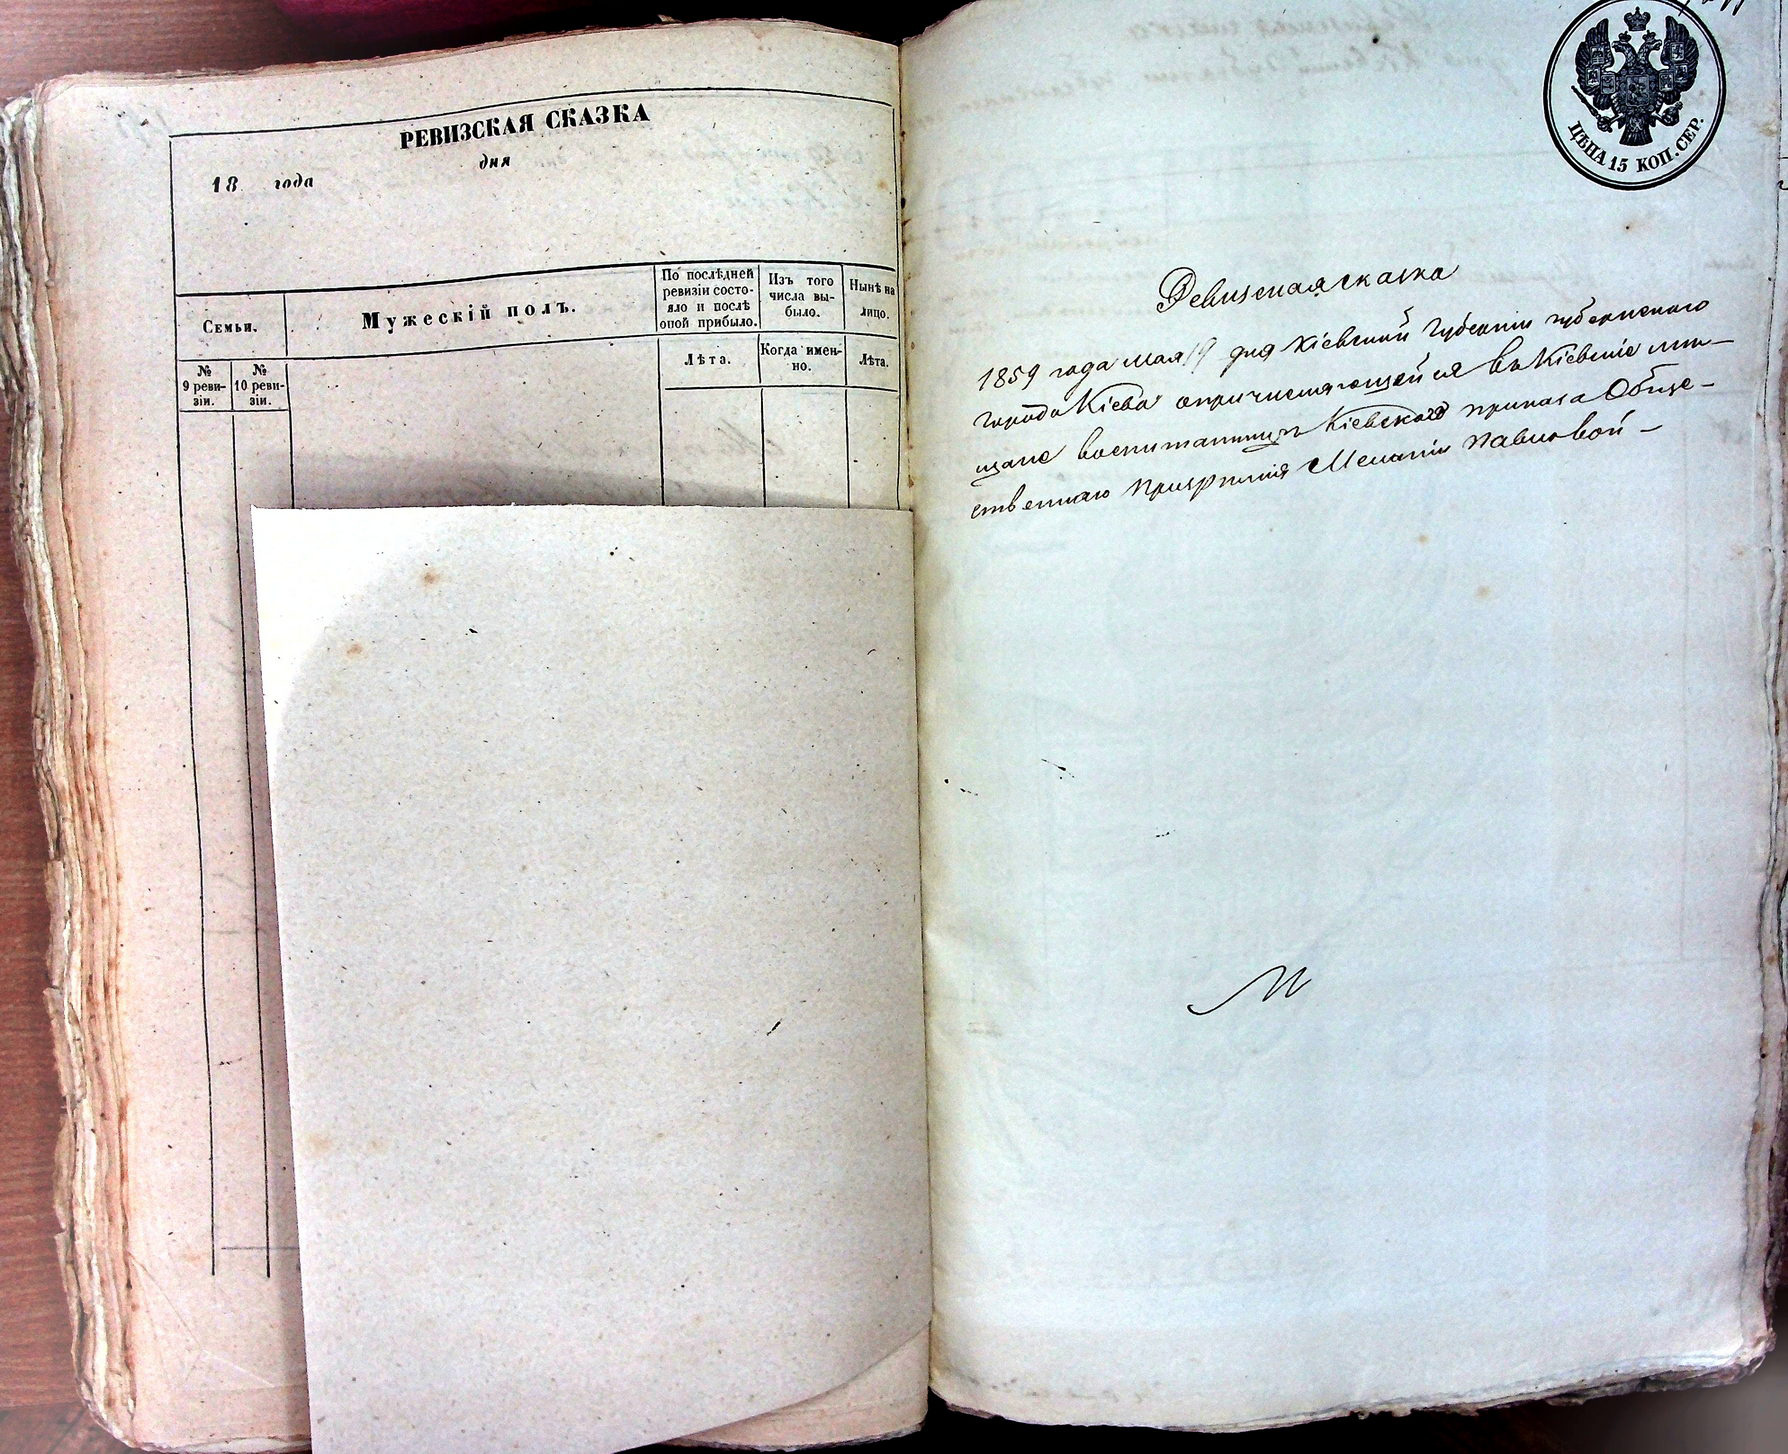 РЕВИЗСКАЯ СКАЗКА
дня
18 года
Семьи.
Мужескій полъ.
По послѣдней
ревизіи состо-
яло и послѣ
оной прибыло.
Изъ того
числа вы-
было.
Нынѣ на
лицо.
№
9 реви-
зіи.
№
10 реви-
зіи.
Лѣта.
Когда имен-
но.
Лѣта.
ЦѢНА 15 КОП. СЕР.
Ревизская сказка
1859 года мая 19 дня Кіевской Губерніи губернскаго
города Кіева о причисляющейся въ Кіевскіе мѣ-
щане воспитанницѣ Кіевскаго приказа Обще-
ственнаго Призрѣнія Меланіи Павловой –